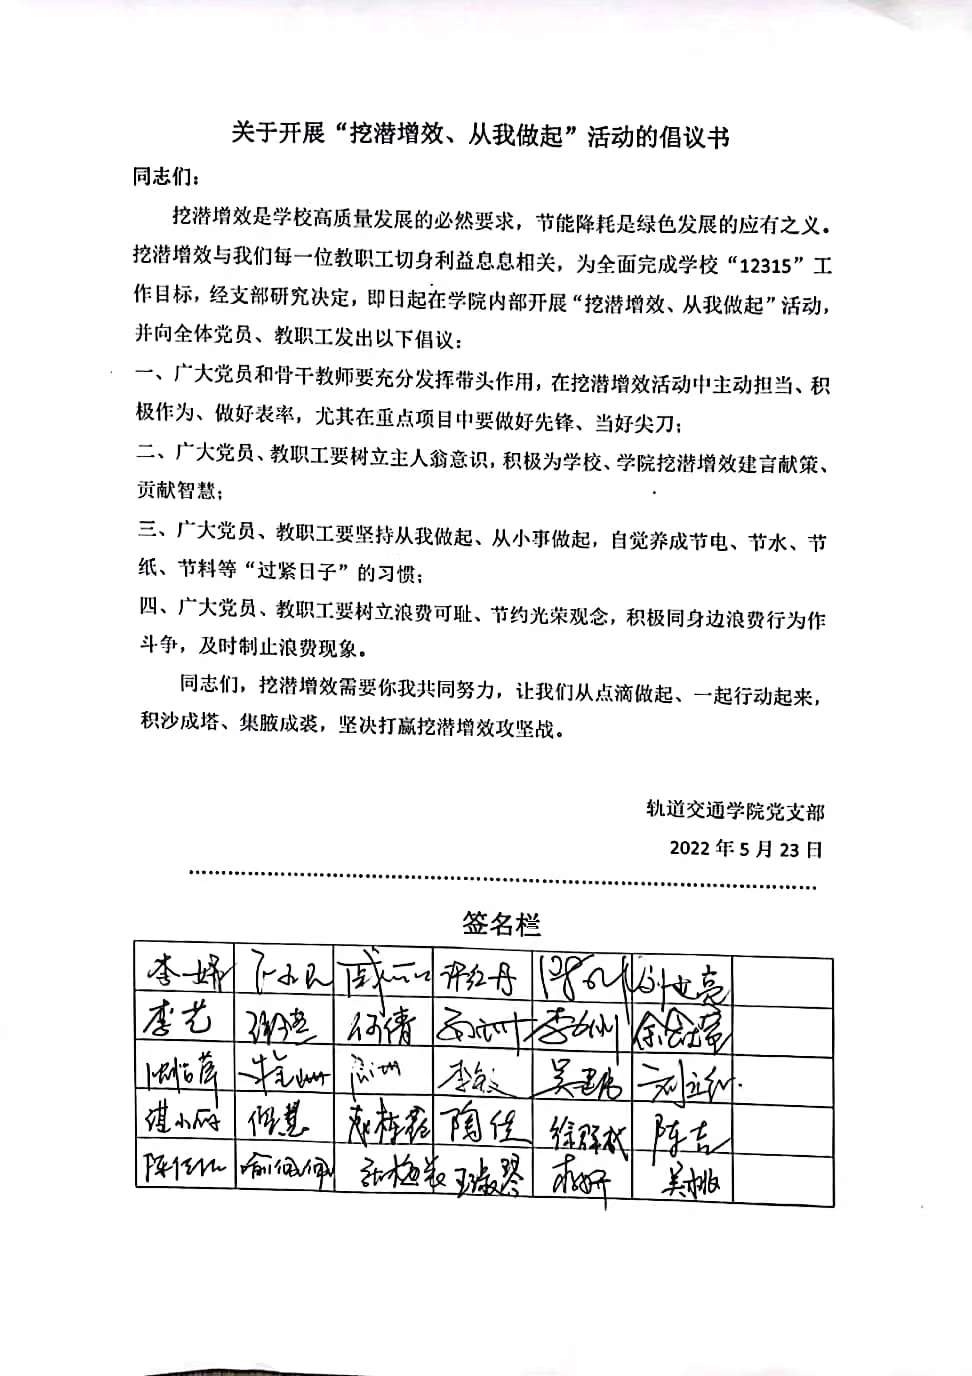 关于开展“挖潜增效、从我做起”活动的倡议书
同志们：
挖潜增效是学校高质量发展的必然要求，节能降耗是绿色发展的应有之义。
挖潜增效与我们每一位教职工切身利益息息相关，为全面完成学校“12315”工
作目标，经支部研究决定，即日起在学院内部开展“挖潜增效、从我做起”活动，
并向全体党员、教职工发出以下倡议：
一、广大党员和骨干教师要充分发挥带头作用，在挖潜增效活动中主动担当、积
极作为、做好表率，尤其在重点项目中要做好先锋、当好尖刀；
二、广大党员、教职工要树立主人翁意识，积极为学校、学院挖潜增效建言献策、
贡献智慧；
三、广大党员、教职工要坚持从我做起、从小事做起，自觉养成节电、节水、节
纸、节料等“过紧日子”的习惯；
四、广大党员、教职工要树立浪费可耻、节约光荣观念，积极同身边浪费行为作
斗争，及时制止浪费现象。
同志们，挖潜增效需要你我共同努力，让我们从点滴做起、一起行动起来，
积沙成塔、集腋成裘，坚决打赢挖潜增效攻坚战。
轨道交通学院党支部
2022 年 5 月 23 日
签名栏
李娣 许红丹
李艺 何倩
李敏
谌小丽 倪慧 陶佳 徐群威 陈吉
喻佩佩 张梅紫 王淑琴 吴桃